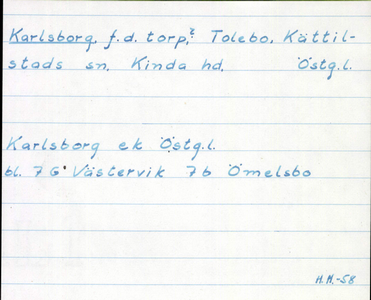 Karlsborg, f.d. torp,? Tolebo, Kättil-
stads sn, Kinda hd, Östg.l.
Karlsborg ek Östg.l.
bl. 7 G Västervik 7b Ömelsbo
H.H.-58